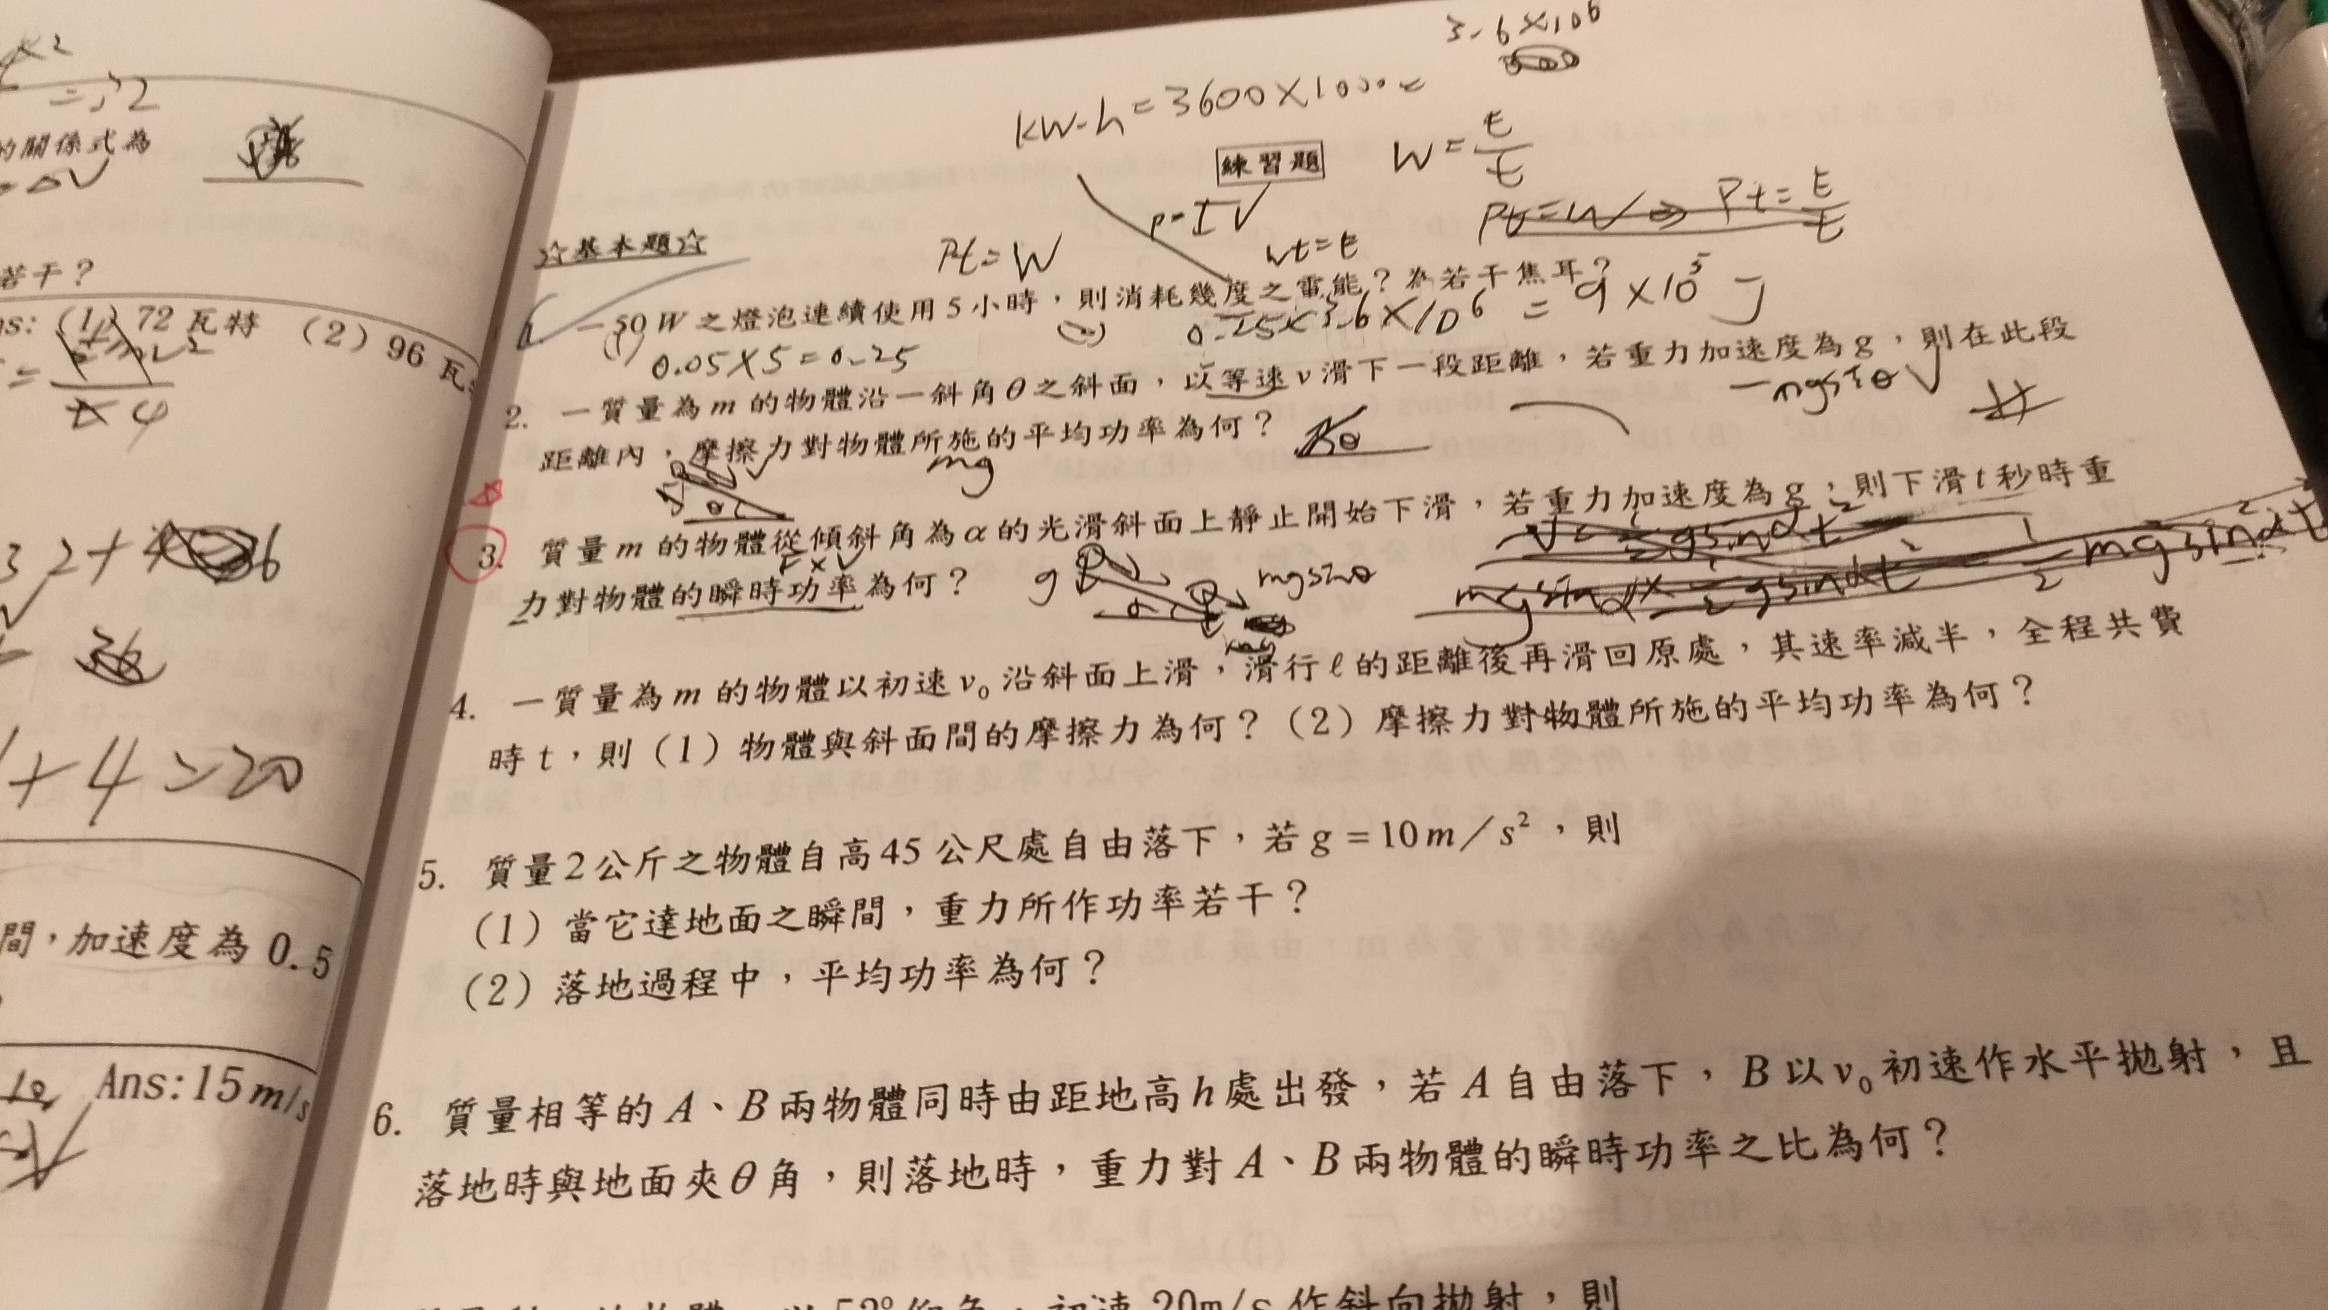 x²
=32
的關係式為
=ΔV
若干？
ns: (1) 72 瓦特 (2) 96 瓦
32+
6
+4=20
間，加速度為 0.5
Ans:15m/s
3.6×10⁶
kW-h=3600×1000=
練習題
W=E/t
P=IV
Pt=W→Pt=E/t
☆基本題☆
Pt=W
Wt=E
1. 一50W之燈泡連續使用5小時，則消耗幾度之電能？為若干焦耳？
(1) 0.05×5=0.25
(2) 0.25×3.6×10⁶ = 9×10⁵ J
2. 一質量為m的物體沿一斜角θ之斜面，以等速v滑下一段距離，若重力加速度為g，則在此段
距離內，摩擦力對物體所施的平均功率為何？
-mgsinθV
mg
θ
3. 質量m的物體從傾斜角為α的光滑斜面上靜止開始下滑，若重力加速度為g，則下滑t秒時重
力對物體的瞬時功率為何？
F×V
g
α
mgsinθ
V=½gsinαt²
mgsinα×½gsinαt²=½mg²sin²αt²
4. 一質量為m的物體以初速v₀沿斜面上滑，滑行ℓ的距離後再滑回原處，其速率減半，全程共費
時t，則（1）物體與斜面間的摩擦力為何？（2）摩擦力對物體所施的平均功率為何？
5. 質量2公斤之物體自高45公尺處自由落下，若g=10m／s²，則
（1）當它達地面之瞬間，重力所作功率若干？
（2）落地過程中，平均功率為何？
6. 質量相等的A、B兩物體同時由距地高h處出發，若A自由落下，B以v₀初速作水平拋射，且
落地時與地面夾θ角，則落地時，重力對A、B兩物體的瞬時功率之比為何？
53°仰角，初速20m/s作斜向拋射，則